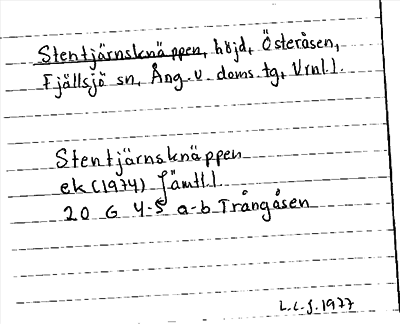 Stentjärnsknäppen, höjd, Österåsen,
Fjällsjö sn, Ång. v. doms. tg, Vrnl.l.
Stentjärnsknäppen
ek (1974) Jämtl.l.
20 G 4-5 a-b Trångåsen
L.L.J. 1977